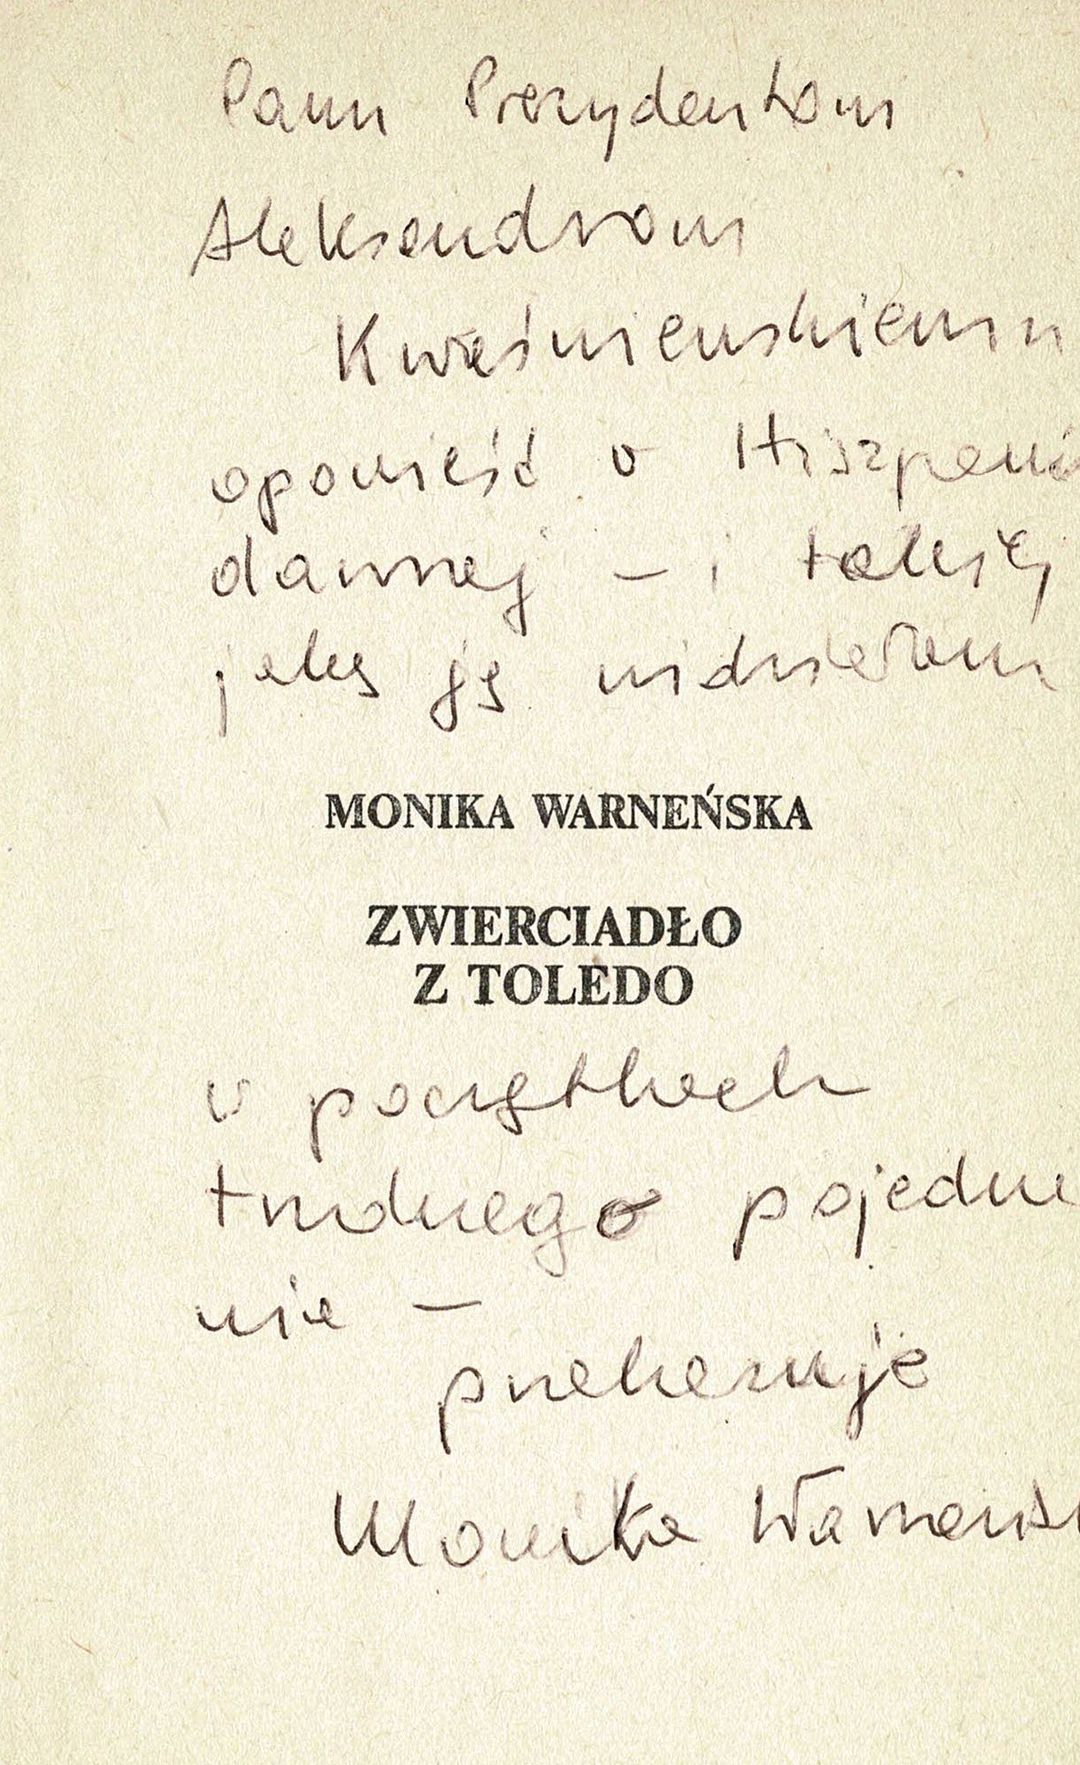 Panu Prezydentowi
Aleksandrowi
Kwaśniewskiemu
opowieść o Hiszpanii
dawnej – i takiej
jaką ją widziałam
MONIKA WARNEŃSKA
ZWIERCIADŁO
Z TOLEDO
w początkach
trudnego pojedna
nia –
przekazuję
Monika Warneńsk